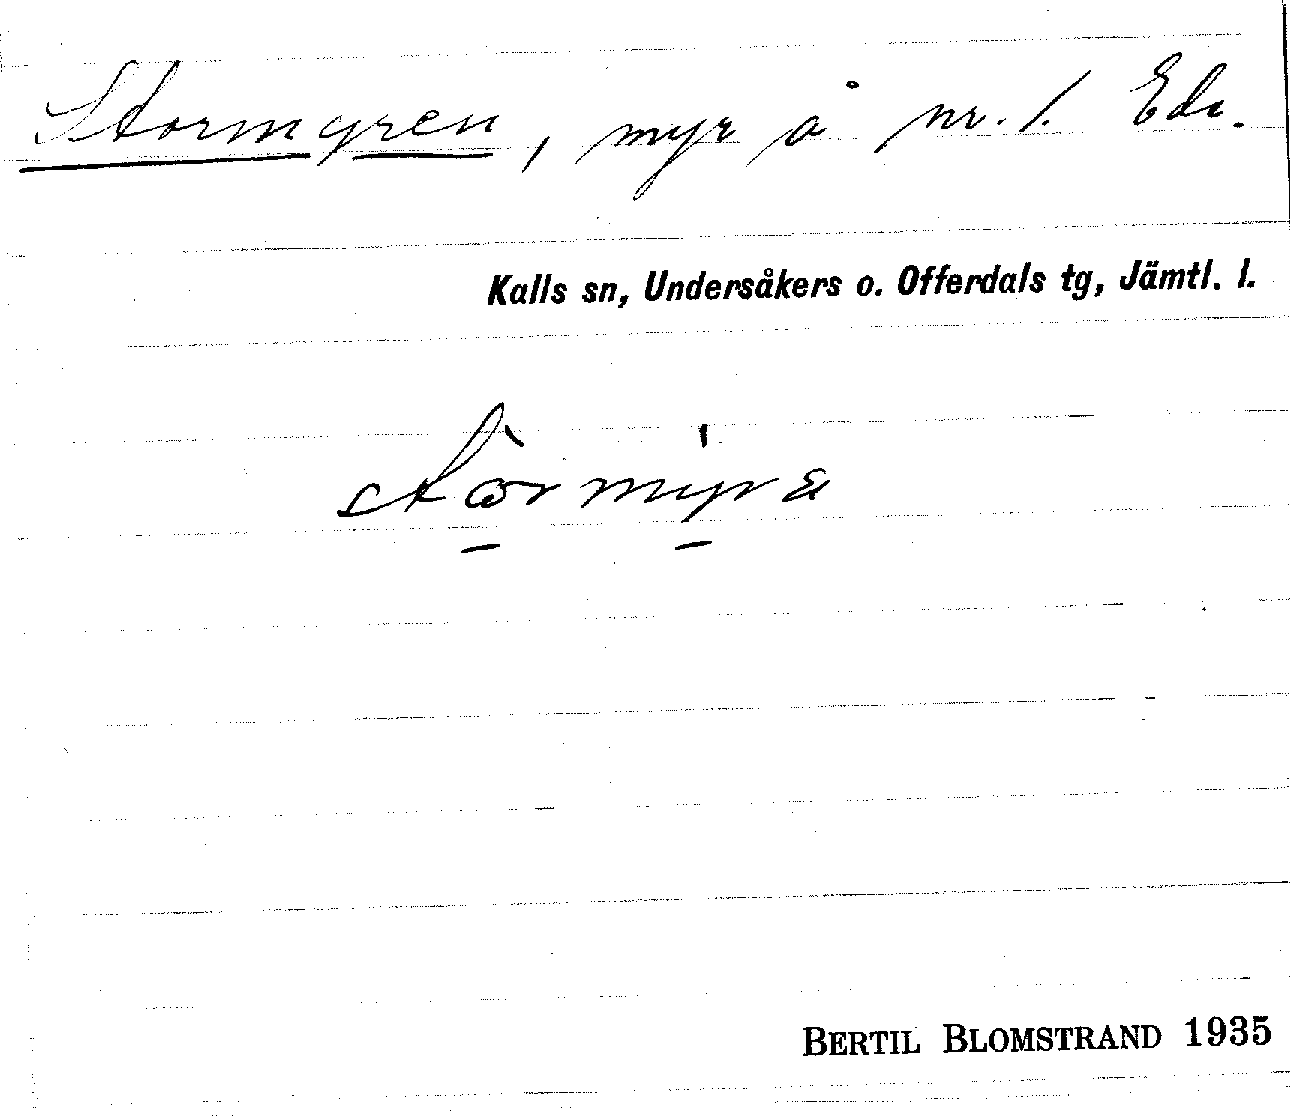 Stormyren, myr å nr. 1. Ede.
Kalls sn, Undersåkers o. Offerdals tg, Jämtl. l.
BERTIL BLOMSTRAND 1935